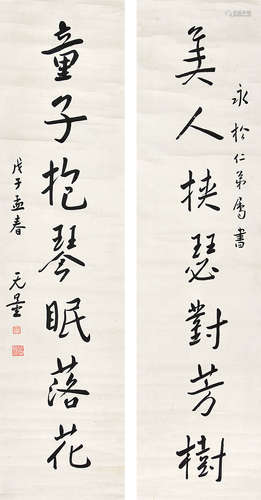 永松仁弟属書
美人挟瑟對芳樹
童子抱琴眠落花
戊子孟春
无量